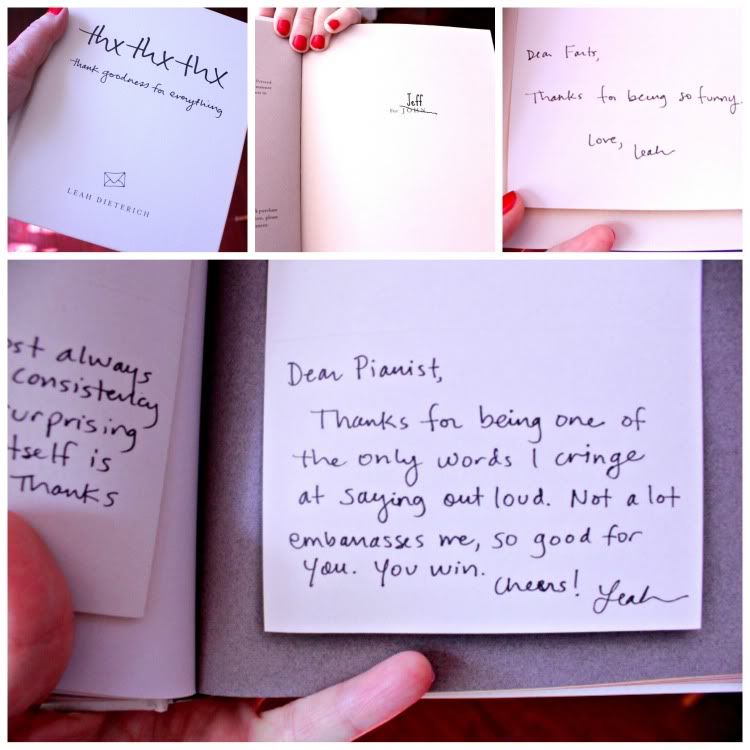 thx thx thx
thank goodness for everything
LEAH DIETERICH
Jeff
for JOHN
Dear Farts,
Thanks for being so funny.
Love,
Leah
ost always
consistency
urprising
tself is
Thanks
Dear Pianist,
Thanks for being one of
the only words I cringe
at saying out loud. Not a lot
embarrasses me, so good for
you. You win.
Cheers! Leah